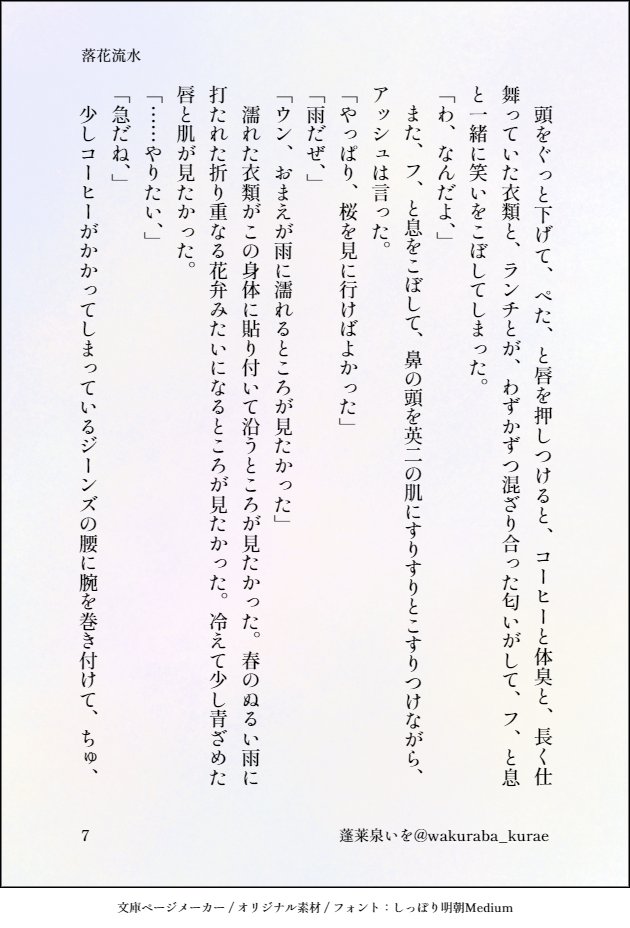 落花流水
　頭をぐっと下げて、ぺた、と唇を押しつけると、コーヒーと体臭と、長く仕
舞っていた衣類と、ランチとが、わずかずつ混ざり合った匂いがして、フ、と息
と一緒に笑いをこぼしてしまった。
「わ、なんだよ、」
　また、フ、と息をこぼして、鼻の頭を英二の肌にすりすりとこすりつけながら、
アッシュは言った。
「やっぱり、桜を見に行けばよかった」
「雨だぜ、」
「ウン、おまえが雨に濡れるところが見たかった」
　濡れた衣類がこの身体に貼り付いて沿うところが見たかった。春のぬるい雨に
打たれた折り重なる花弁みたいになるところが見たかった。冷えて少し青ざめた
唇と肌が見たかった。
「……やりたい、」
「急だね、」
　少しコーヒーがかかってしまっているジーンズの腰に腕を巻き付けて、ちゅ、
7
蓬莱泉いを@wakuraba_kurae
文庫ページメーカー / オリジナル素材 / フォント：しっぽり明朝Medium